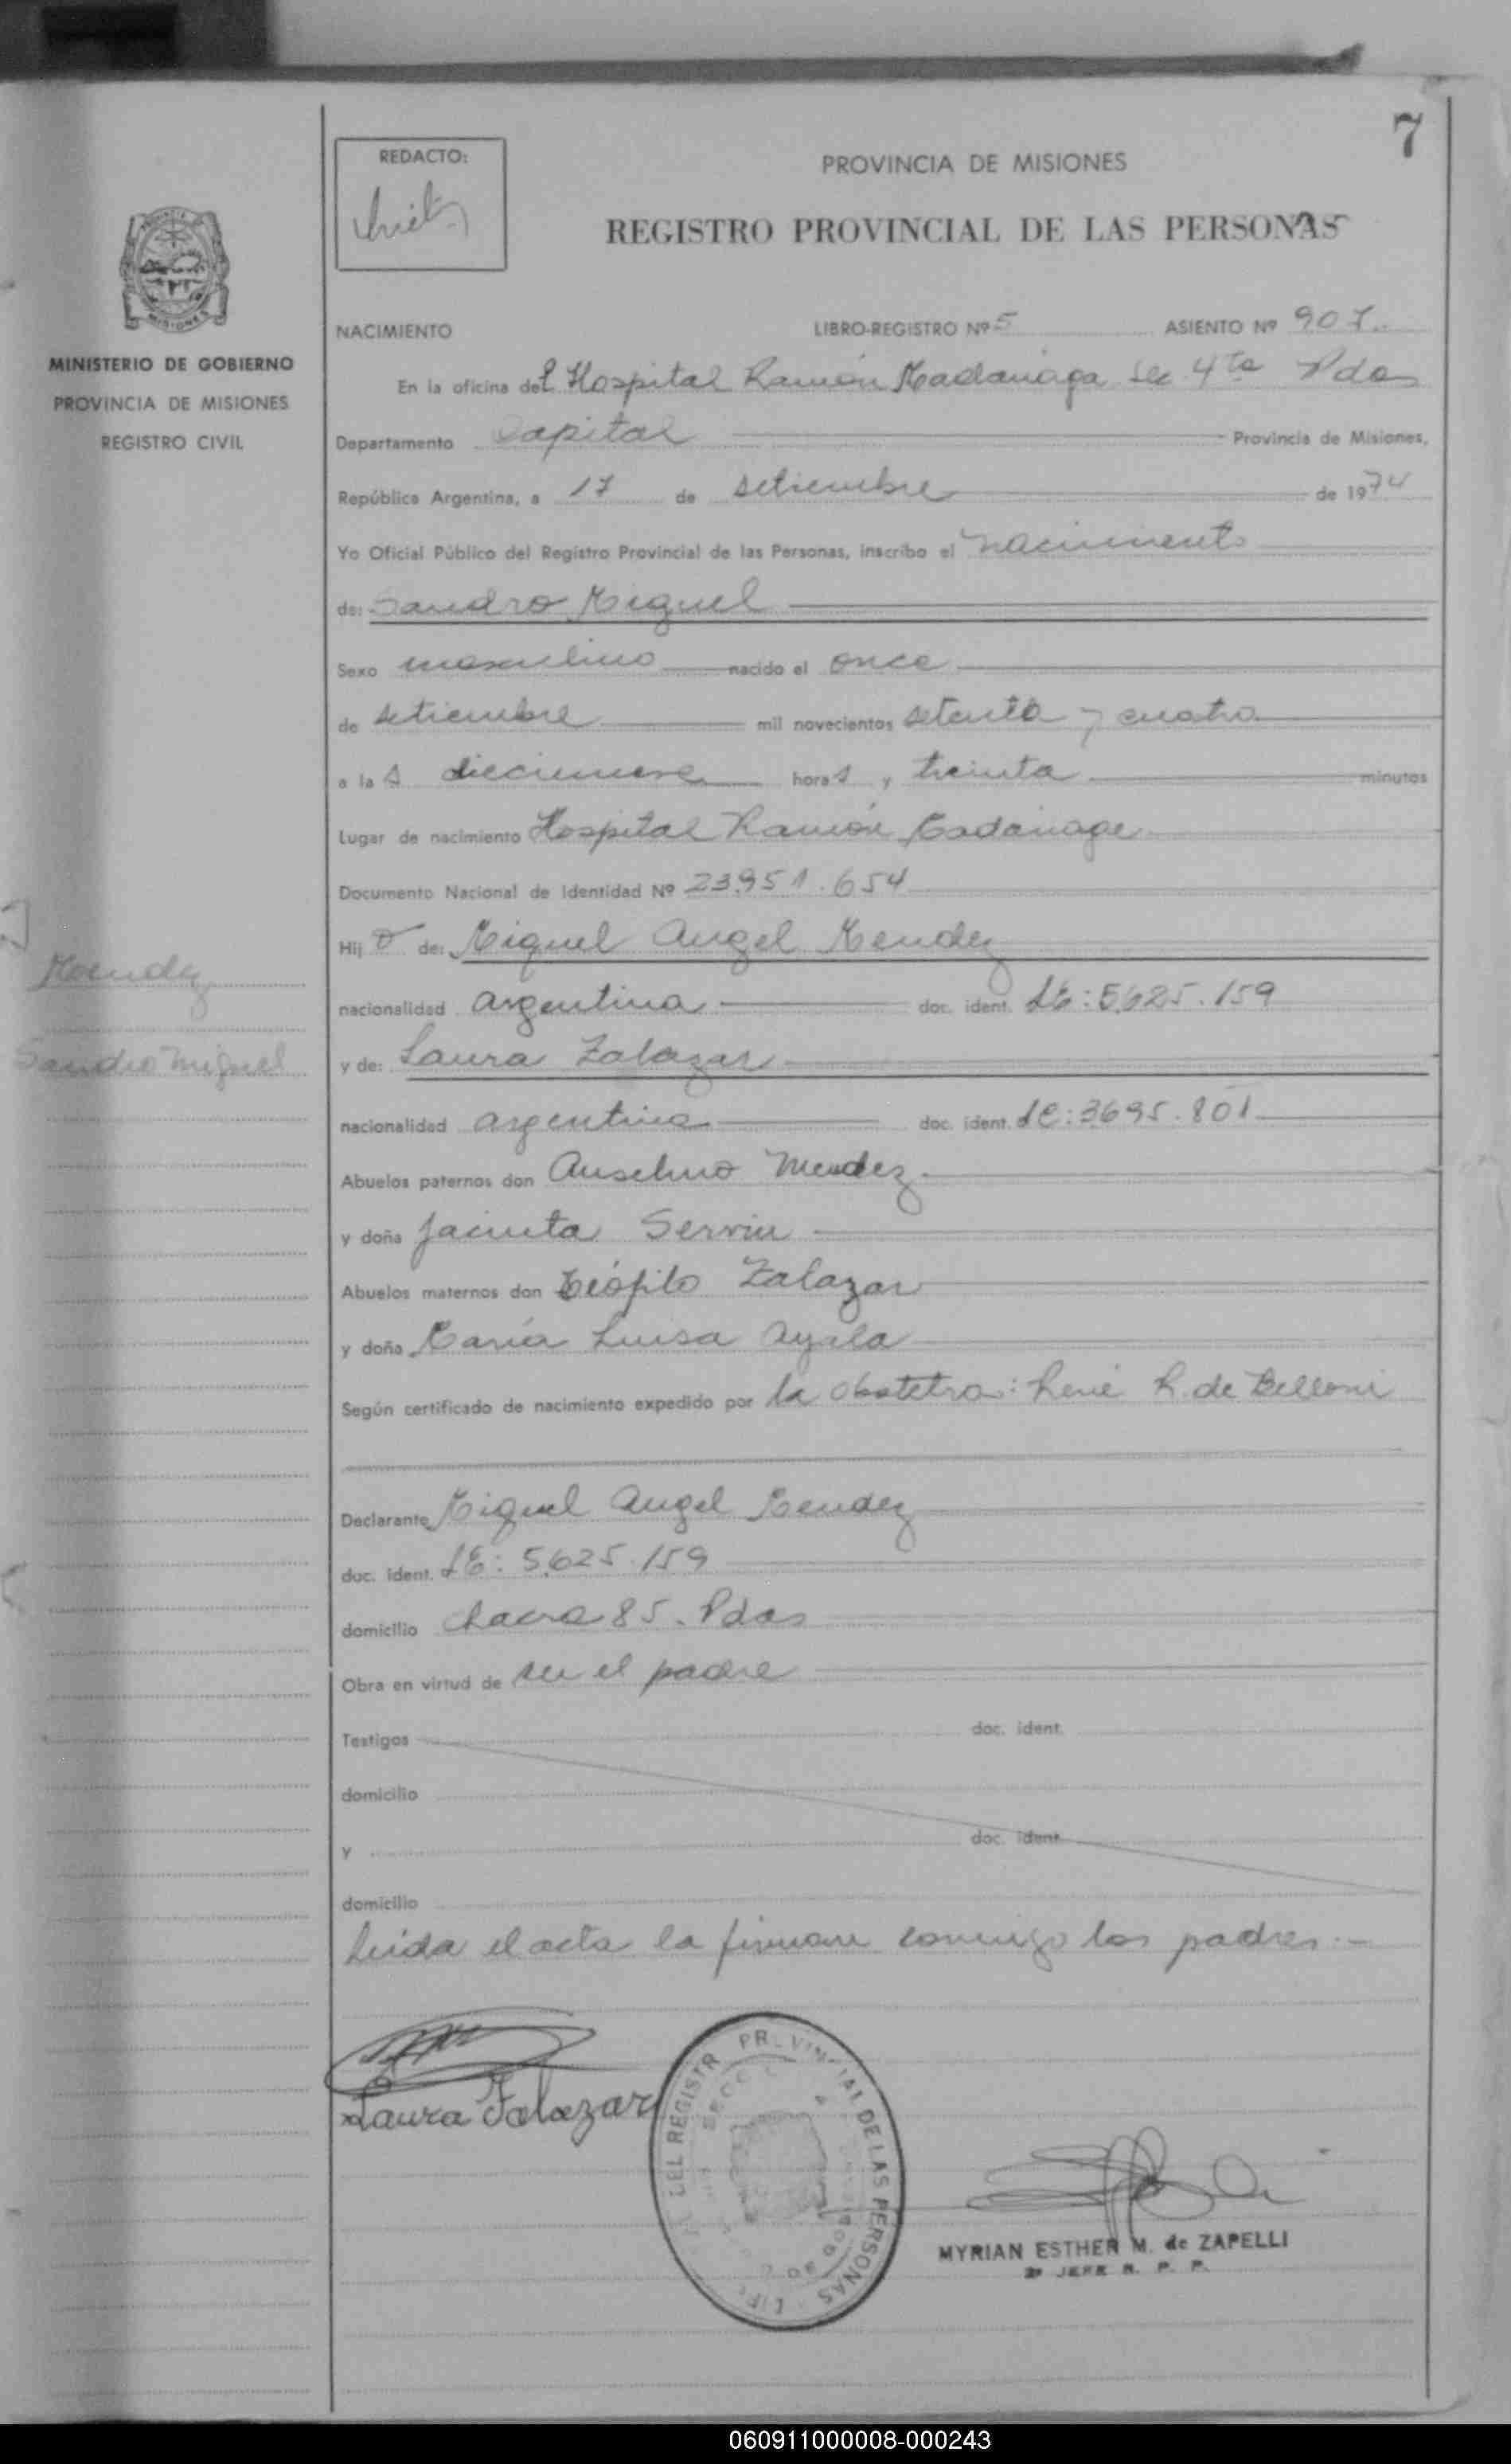 7
REDACTO:
PROVINCIA DE MISIONES
REGISTRO PROVINCIAL DE LAS PERSONAS
MISIONES
MINISTERIO DE GOBIERNO
PROVINCIA DE MISIONES
REGISTRO CIVIL
NACIMIENTO LIBRO-REGISTRO Nº 5 ASIENTO Nº 907.
En la oficina del Hospital Ramón Madariaga Sec 4ta Pdas
Departamento Capital Provincia de Misiones,
República Argentina, a 17 de setiembre de 1974
Yo Oficial Público del Registro Provincial de las Personas, inscribo el nacimiento
de: Sandro Miguel
Sexo masculino nacido el once
de setiembre mil novecientos setenta y cuatro
a las diecinueve horas y treinta minutos
Lugar de nacimiento Hospital Ramón Madariaga
Documento Nacional de Identidad Nº 23.951.654
Hijo de: Miguel Angel Mendez
Mendez
nacionalidad argentina doc. ident. LE: 5.625.159
Sandro Miguel
y de: Laura Zalazar
nacionalidad argentina doc. ident. LC: 3.695.801
Abuelos paternos don Anselmo Mendez
y doña Jacinta Servin
Abuelos maternos don Teófilo Zalazar
y doña María Luisa Ayala
Según certificado de nacimiento expedido por la obstetra: René R. de Belloni
Declarante Miguel Angel Mendez
doc. ident. LE: 5.625.159
domicilio Chacra 85. Pdas
Obra en virtud de ser el padre
Testigos doc. ident.
domicilio
y doc. ident.
domicilio
Leida el acta la firman conmigo los padres.-
Laura Zalazar
DEL REGISTRO PROVINCIAL DE LAS PERSONAS
MYRIAN ESTHER M. de ZAPELLI
2º JEFE R. P. P.
060911000008-000243